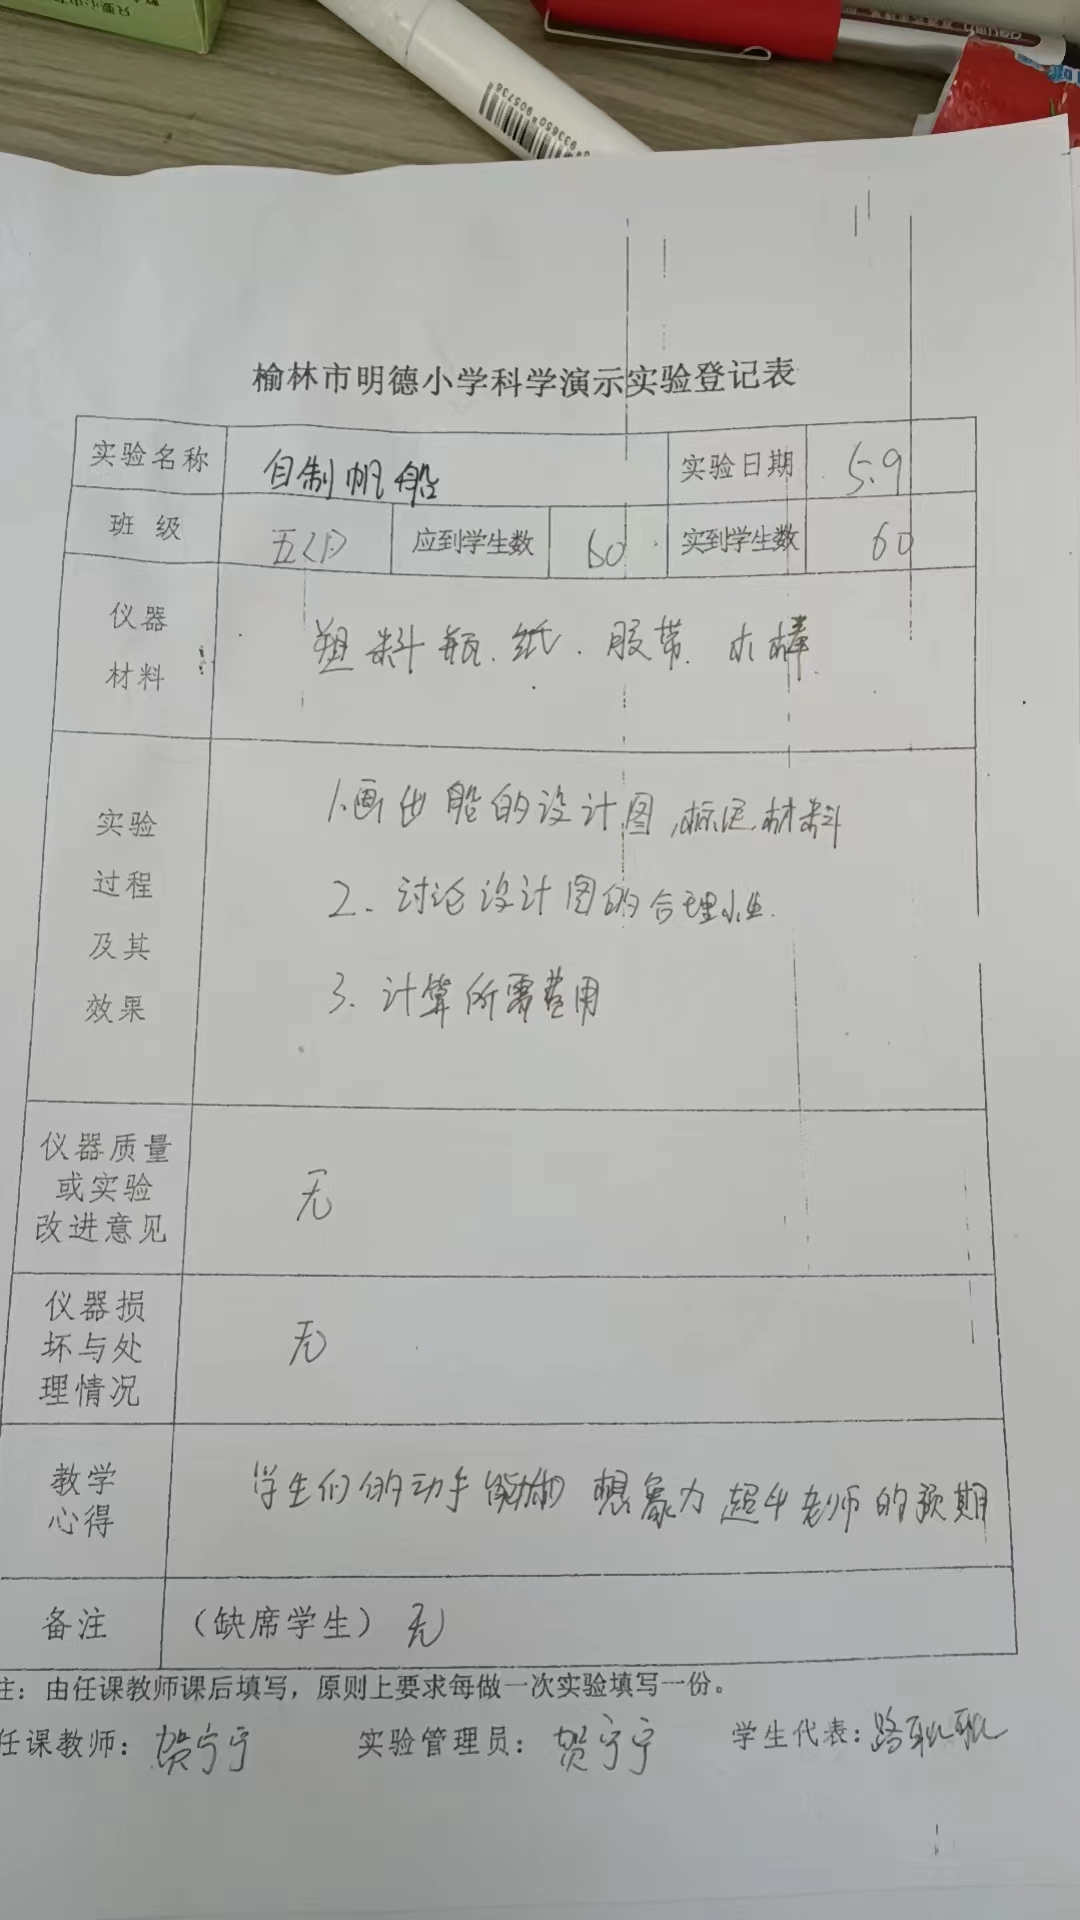 933650 905736
榆林市明德小学科学演示实验登记表
实验名称 自制帆船 实验日期 5.9
班 级 五(1) 应到学生数 60 实到学生数 60
仪器
材料
塑料瓶、纸、胶带、木棒
实验
过程
及其
效果
1.画出船的设计图,标注材料
2.讨论设计图的合理性.
3.计算所需费用
仪器质量
或实验
改进意见
无
仪器损
坏与处
理情况
无
教学
心得
学生们的动手能力和想象力超乎老师的预期
备注 (缺席学生) 无
注：由任课教师课后填写，原则上要求每做一次实验填写一份。
任课教师：贺宁宁 实验管理员：贺宁宁 学生代表：路